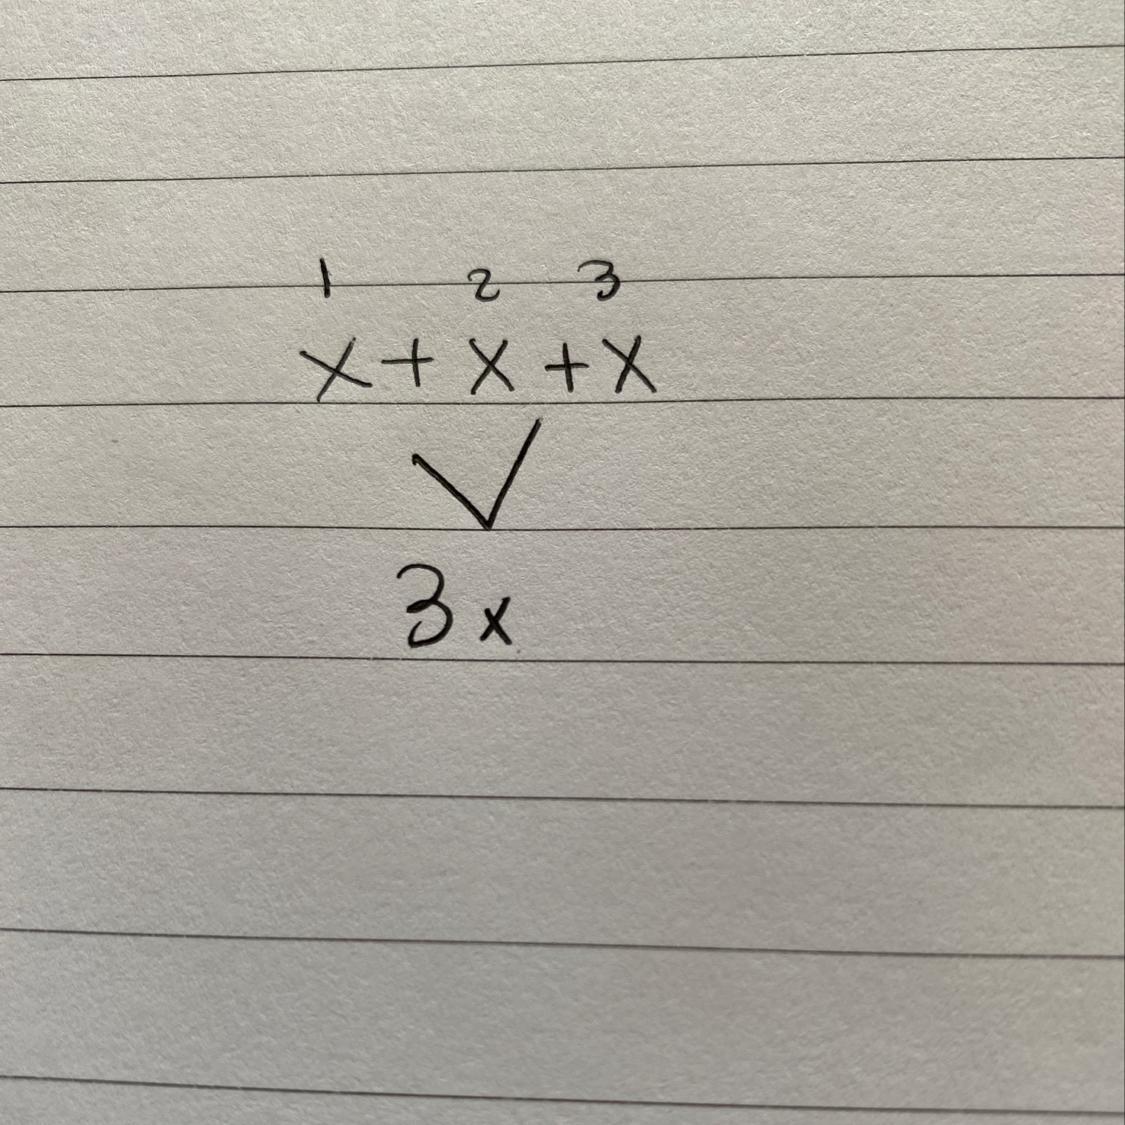 1 2 3
x + x + x
3x